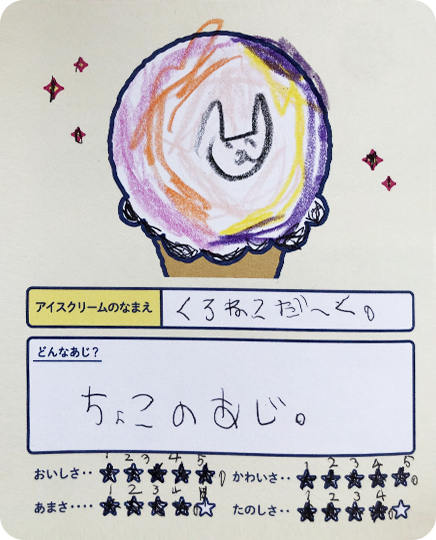 アイスクリームのなまえ
くろねこだーく。
どんなあじ?
ちょこのあじ。
1 2 3 4 5
おいしさ‥ ★★★★★
1 2 3 4 5
かわいさ‥ ★★★★★
1 2 3 4
あまさ‥‥ ★★★★☆
1 2 3 4
たのしさ‥ ★★★★☆